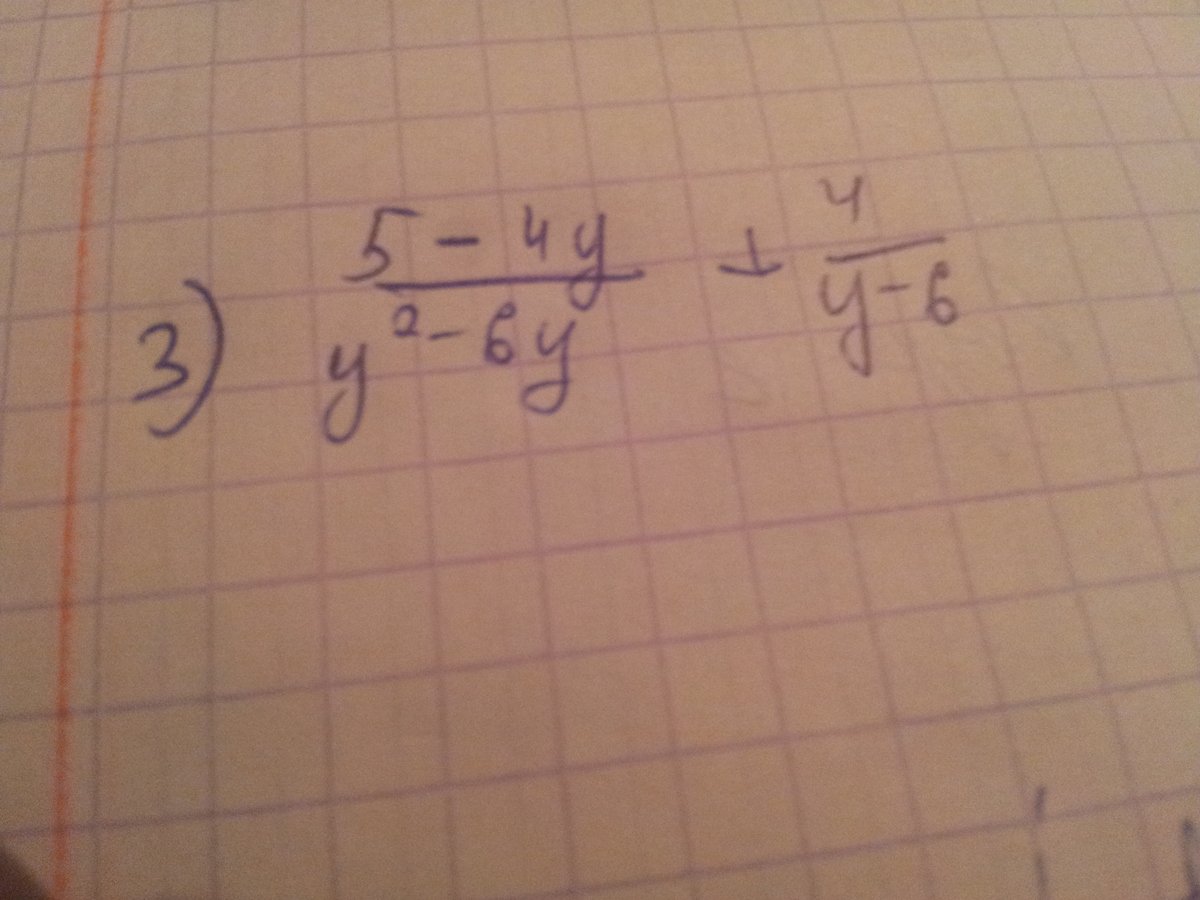 3) (5 - 4y)/(y² - 6y) + 4/(y - 6)